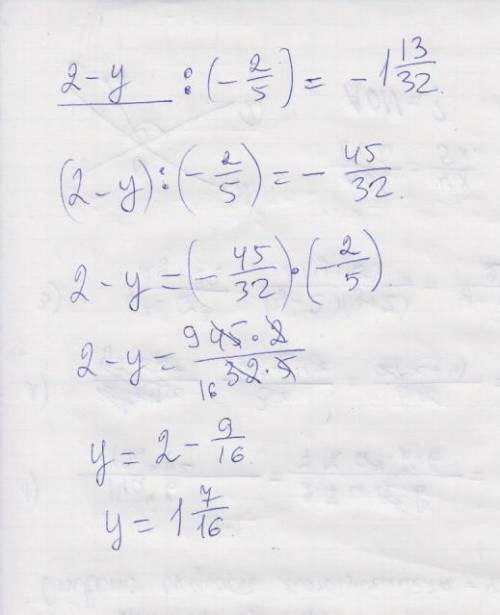 2-y : (-2/5) = -1 13/32
(2-y) : (-2/5) = - 45/32
2-y = (-45/32) · (-2/5)
2-y = 9 45·2 / 16 32·5
y = 2 - 9/16
y = 1 7/16